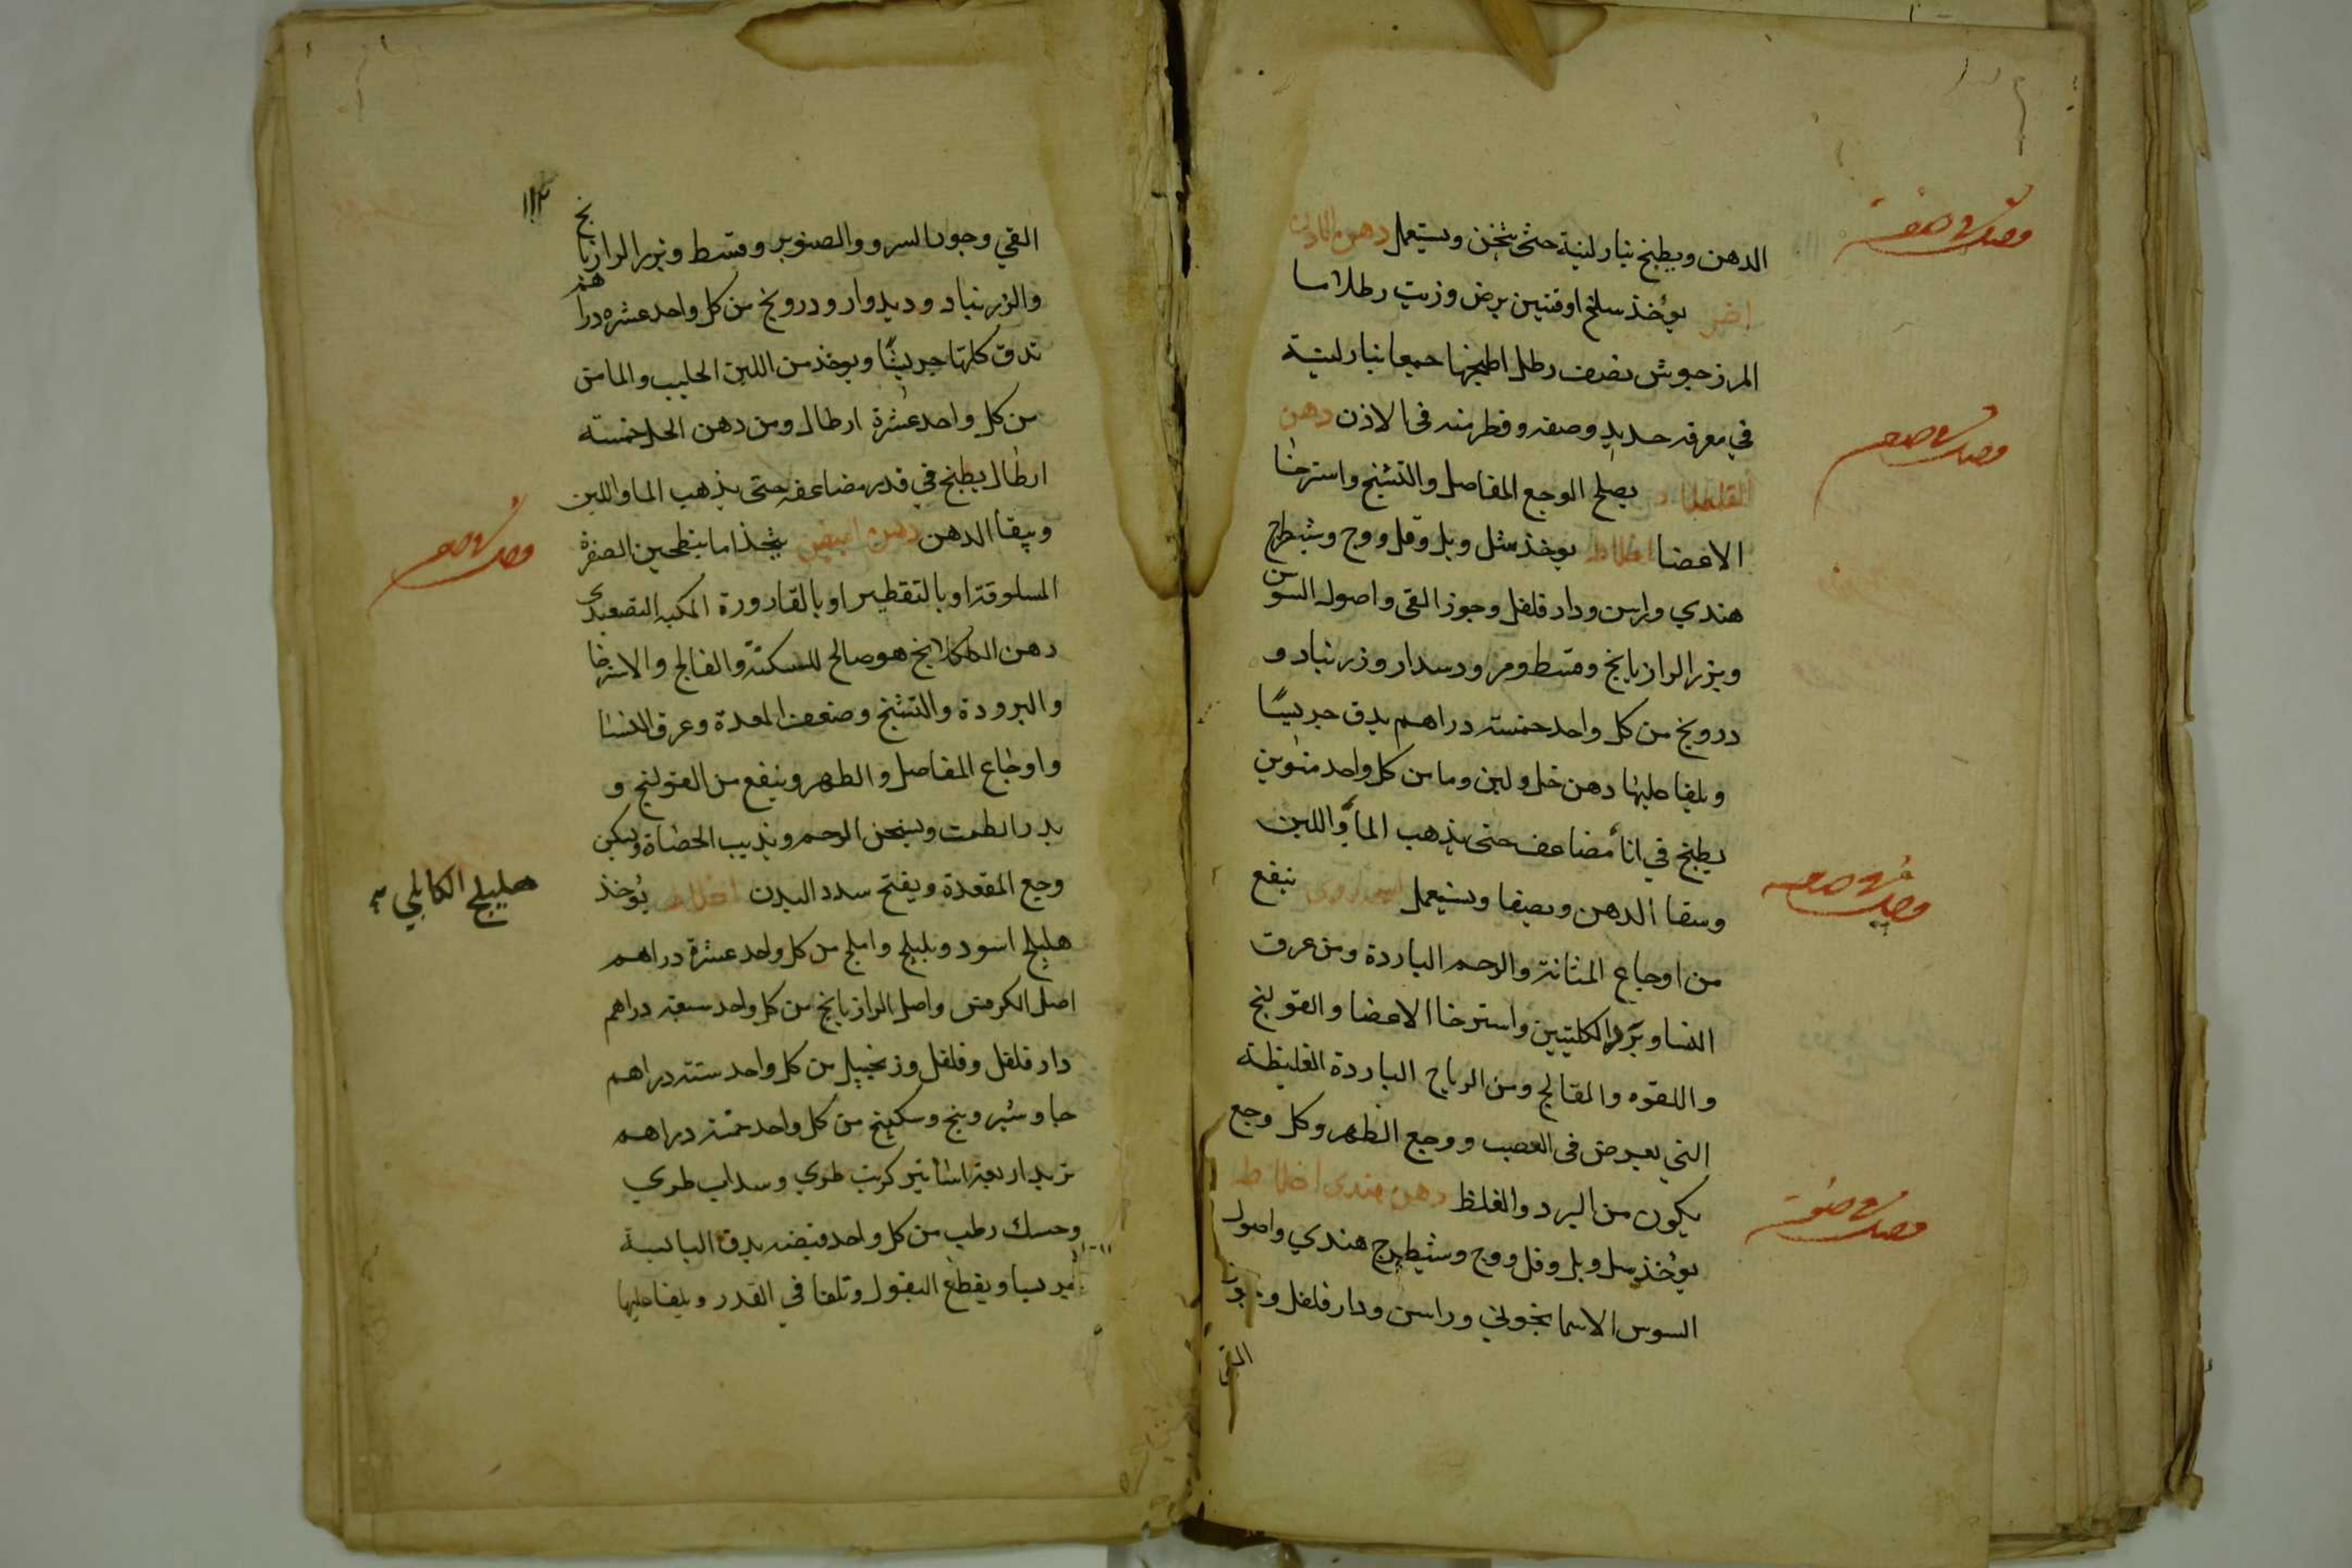 فصل في صفة
الدهن ويطبخ بنار لينة حتى يثخن ويستعمل دهن الاذن
اخر يؤخذ سلخ اوقتين برض وزيت رطلا ما
المرزجوش نصف رطل اطبخها جميعا بنار لينة
في مغرفه حديد وصفه وقطر منه في الاذن دهن
فصل في صفة
يصلح الوجع المفاصل والتشنج واسترخا
الاعضا اخلاط يوخذ شل وبل وفل ووج وشيطرج
هندي وراسن ودار فلفل وجوز القي واصول السوسن
وبزر الرازيانج وقسط ومر ودسدار وزرنباد و
درونج من كل واحد خمسة دراهم يدق جريشا
ويلقا عليها دهن خل ولبن وما من كل واحد منوين
يطبخ في انا مضاعف حتى يذهب الما واللبن
ويبقا الدهن ويصفا ويستعمل ينفع
فصل في صفة
من اوجاع المثانة والرحم الباردة ومن عرق
النسا وبرد الكليتين واسترخا الاعضا والقولنج
واللقوه والفالج ومن الرياح الباردة الغليظة
التي يعرض في العصب ووجع الظهر وكل وجع
يكون من البرد والغلظ دهن هندي اخلاط
فصل في صفة
يؤخذ سل وبل وفل ووج وشيطرج هندي واصول
السوس الاسمانجوني وراسن ودار فلفل وجوز
القي
١١٣
القي وجوز السرو والصنوبر وقسط وبزر الرازيانج
والزرنباد وديدوار ودرونج من كل واحد عشره دراهم
تدق كلها جريشا ويوخذ من اللبن الحليب والما من
من كل واحد عشرة ارطال ومن دهن الحل خمسه
ارطال يطبخ في قدر مضاعفه حتى يذهب الما واللبن
ويبقا الدهن دهن البيض يتخذ اما بتطحين الصفرة
فصل في صفة
المسلوقة او بالتقطير او بالقارورة المكبه التصعيدي
دهن الكلكلانج هو صالح للسكتة والفالج والاسترخا
والبرودة والتشنج وضعف المعدة وعرق النسا
واوجاع المفاصل والظهر وينفع من القولنج و
يدر الطمث ويسخن الرحم ويذيب الحصاة ويسكن
وجع المقعدة ويفتح سدد البدن اخلاط يؤخذ
هليلج الكابلي
هليلج اسود وبليلج واملج من كل واحد عشرة دراهم
اصل الكرفس واصل الرازيانج من كل واحد سبعة دراهم
دار فلفل وفلفل وزنجبيل من كل واحد ستة دراهم
جاوشير وبنج وسكبينج من كل واحد خمسة دراهم
تربد اربعة اساتير كرنب طري وسداب طري
وحسك رطب من كل واحد قبضه يدق اليابسة
جريسا ويقطع البقول وتلقا في القدر ويلقا عليها